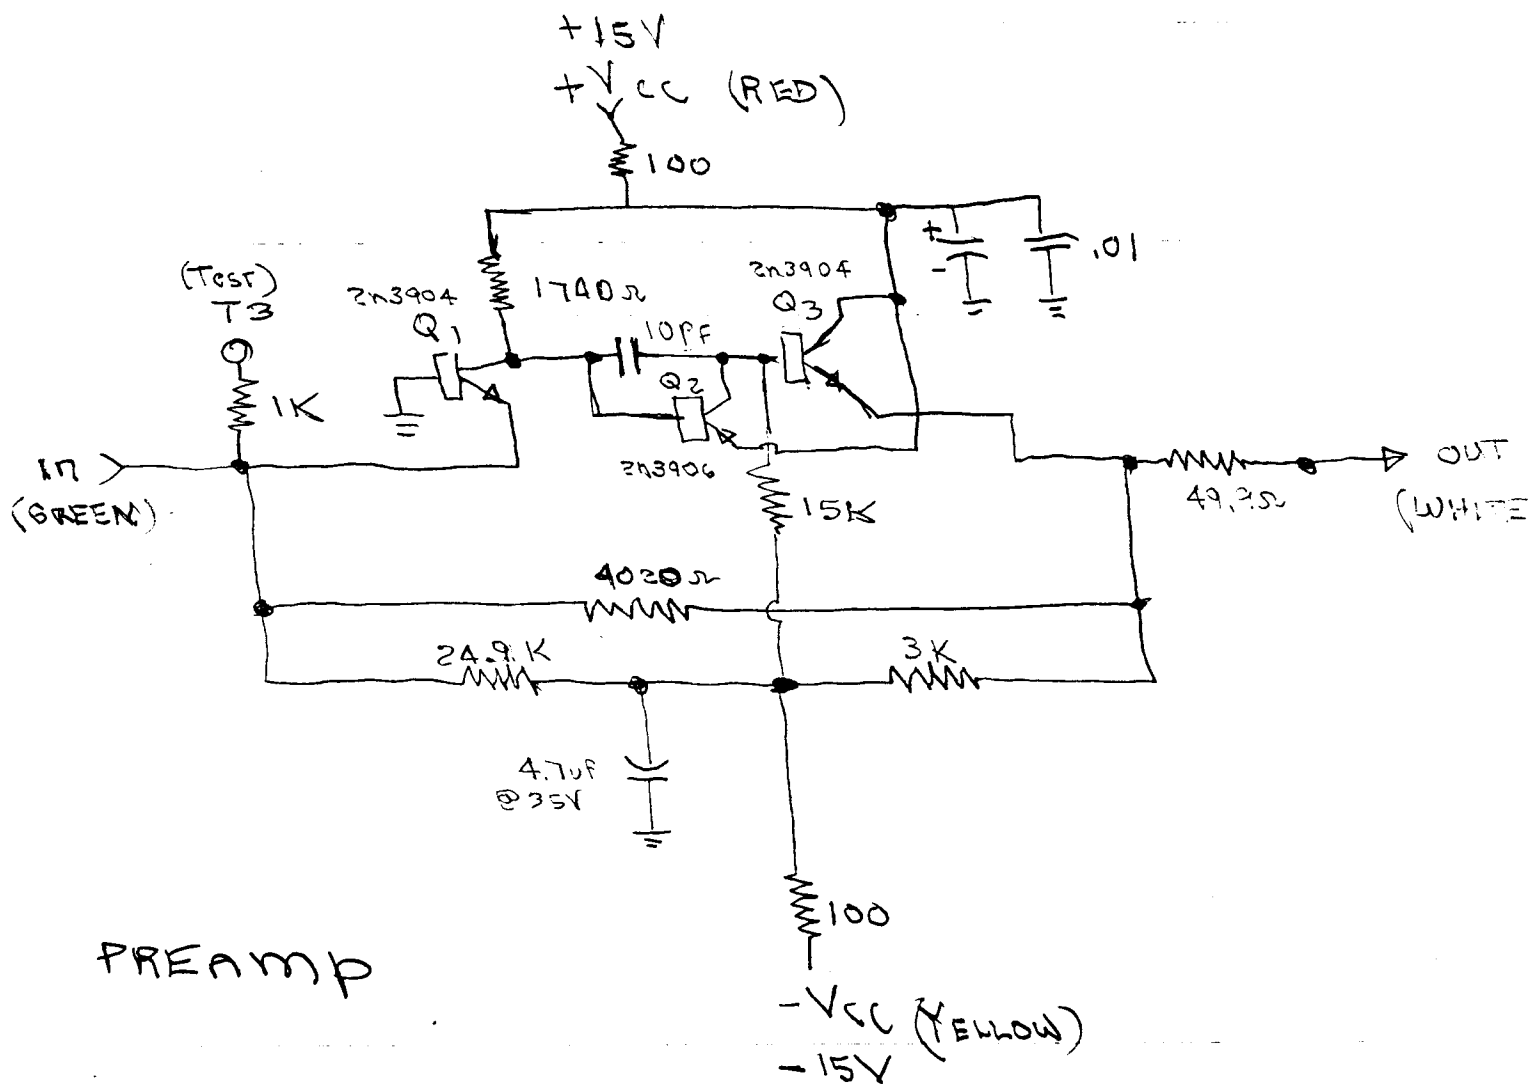 +15V
+VCC (RED)
100
(Test)
T3
2n3904
Q1
1740Ω
10PF
2n3904
Q3
+
-
.01
1K
Q2
2n3906
In
(GREEN)
15K
49.9Ω
OUT
(WHITE
4020Ω
24.9K
3K
4.7uf
@35V
100
PREAmp
-VCC (YELLOW)
-15V